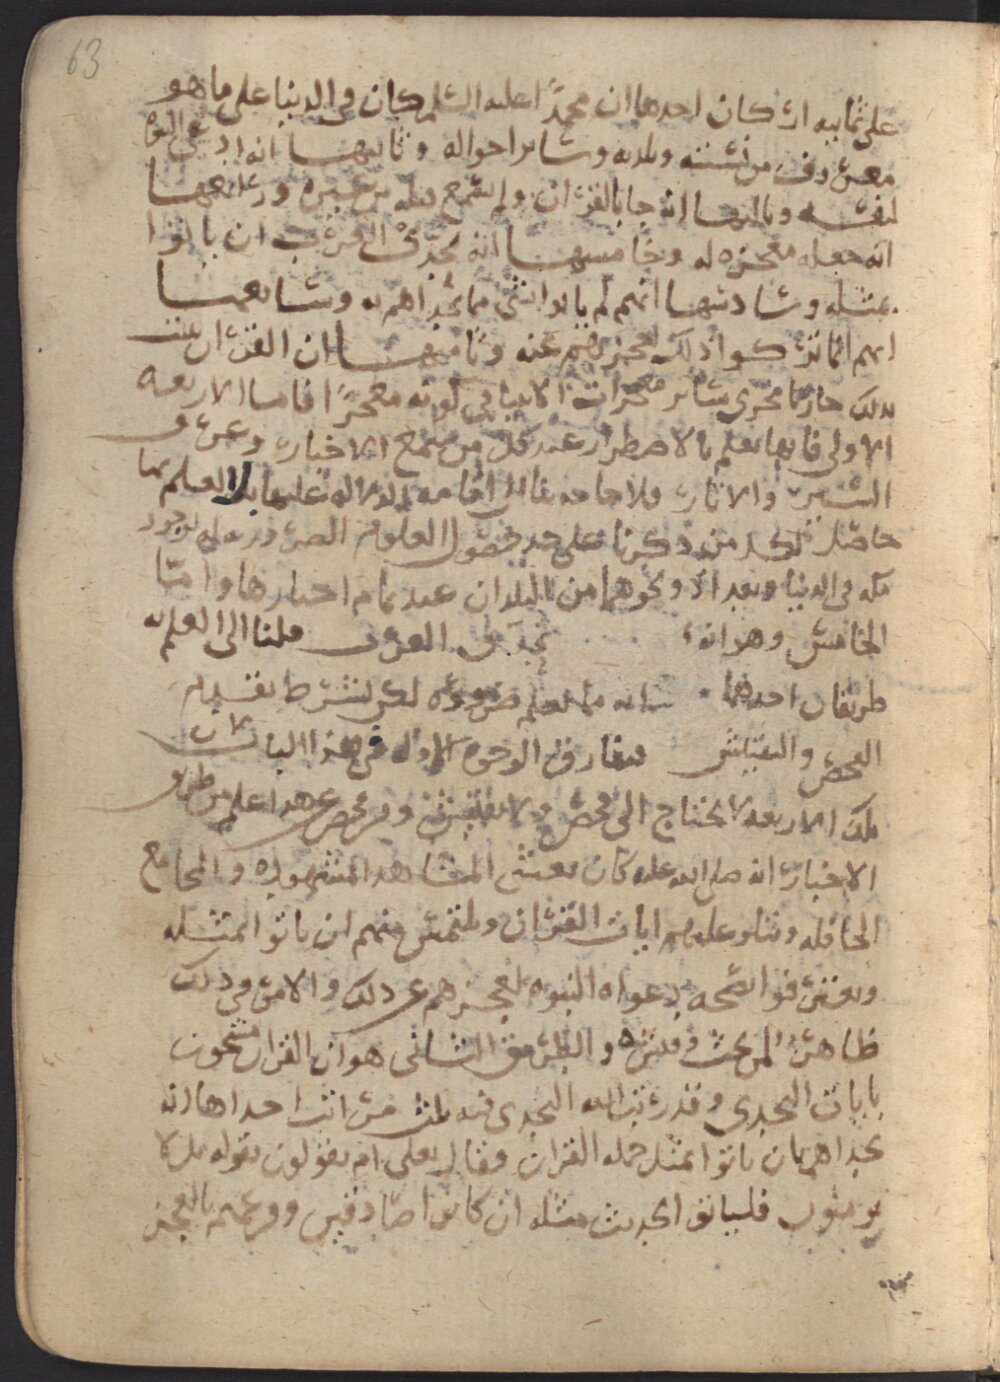 63
على ثمانيه اركان احدها ان محمدًا عليه السلم كان في الدنيا على ما هو
معروف من نسبه وبلده وسائر احواله وثانيها انه ادعى النبوه
لنفسه وثالثها انه جا بالقران ولم يسمع قبله من غيره ورابعها
انه جعله معجزه له وخامسها انه تحدى العرب ان ياتوا
بمثله وسادسها انهم لم ياتوا بشي مما تحداهم به وسابعها
انهم انما تركوا ذلك لعجزهم عنه وثامنها ان القران
بذلك جار مجرى سائر معجزات الانبيا في كونه معجزًا فاما الاربعه
الاولى فانها تعلم بالاضطرار عند كل من سمع الاخبار وعرف
السير والاثار ولا حاجه بنا الى اقامه الدلاله عليها بل العلم بها
حاصل لكل من ذكرنا على حد حصول العلوم الضروريه بوجود
مكه في الدنيا وبغداد ونحوهما من البلدان عند تمام اخبارها واما
الخامس وهو انه تحدى العرب فلنا الى العلم به
طريقان احدهما انه مما يعلم ضروره لكن بشرط تقديم
الفحص والتفتيش ففارق الوجوه الاوله في هذا الباب لان
تلك الاربعه لا تحتاج الى فحص ولا تفتيش ومن فحص عن هذا علم من طريق
الاخبار انه صلى الله عليه كان يغشى المشاهد المشهوده والمجامع
الحافله ويتلو عليهم ايات القران ويلتمس منهم ان ياتوا بمثله
ويعترفوا بصحه دعواه النبوه لعجزهم عن ذلك والامر في ذلك
ظاهر لمن بحث وفتش والطريق الثاني هو ان القران مشحون
بايات التحدي وقد رتب الله التحدي فيه ثلث مراتب احداها انه
تحداهم بان ياتوا بمثل جمله القران وقال تعلى ام يقولون تقوله بل لا
يومنون فلياتوا بحديث مثله ان كانوا صادقين بالعجز